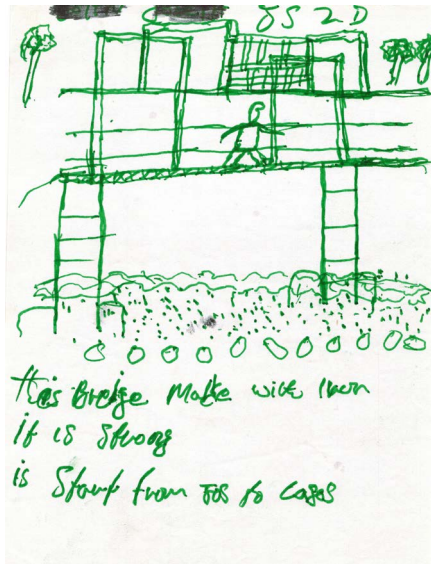 JS 2 D
This Bridge Make with Iron
it is Strong
is Start from Jos to Lagos